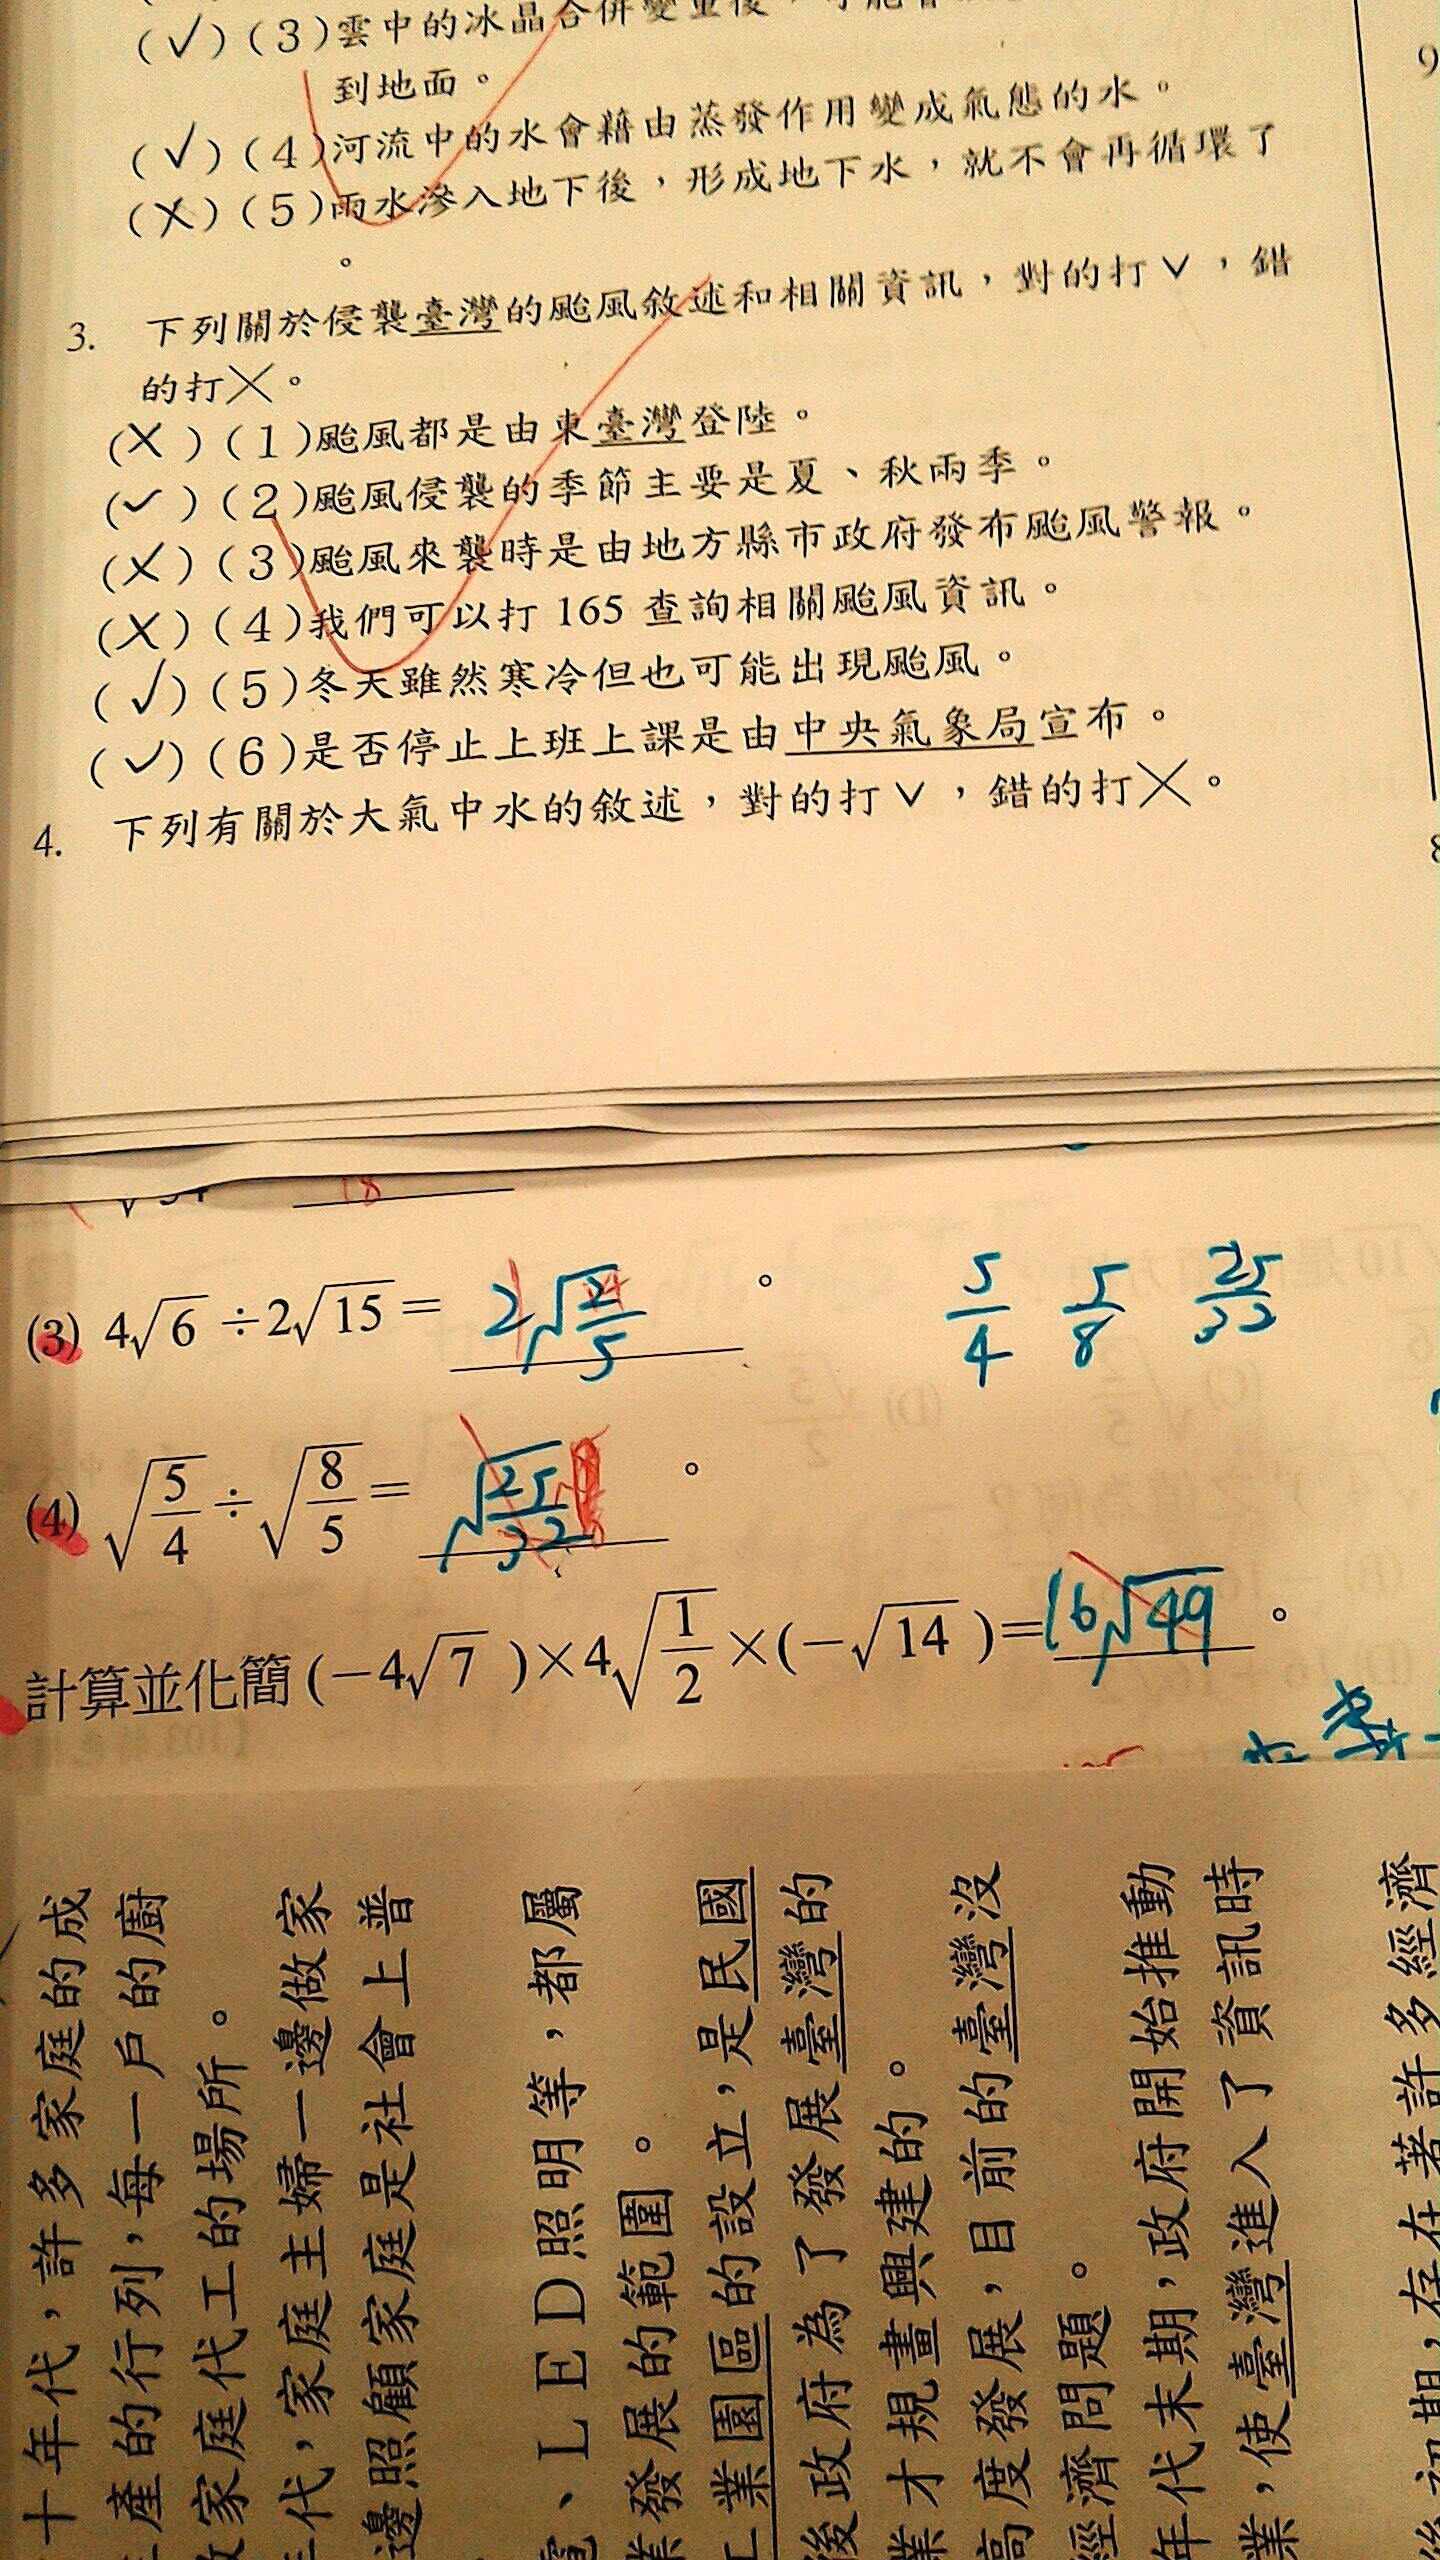 (✓)(3)雲中的冰晶合併變重後，可能會
到地面。
(✓)(4)河流中的水會藉由蒸發作用變成氣態的水。
(X)(5)雨水滲入地下後，形成地下水，就不會再循環了
。
3. 下列關於侵襲臺灣的颱風敘述和相關資訊，對的打∨，錯
的打╳。
(X)(1)颱風都是由東臺灣登陸。
(✓)(2)颱風侵襲的季節主要是夏、秋兩季。
(X)(3)颱風來襲時是由地方縣市政府發布颱風警報。
(X)(4)我們可以打 165 查詢相關颱風資訊。
(✓)(5)冬天雖然寒冷但也可能出現颱風。
(✓)(6)是否停止上班上課是由中央氣象局宣布。
4. 下列有關於大氣中水的敘述，對的打∨，錯的打╳。
9
8
18
(3) 4√6÷2√15= 2√(2/5)。
5/4 5/8 25/32
(4) √(5/4)÷√(8/5)= √(25/32)。
計算並化簡(−4√7)×4√(1/2)×(−√14)=16√49。
十年代，許多家庭的成
產的行列，每一戶的廚
家庭代工的場所。
年代，家庭主婦一邊做家
邊照顧家庭是社會上普
、LED照明等，都屬
業發展的範圍。
工業園區的設立，是民國
後政府為了發展臺灣的
業才規畫興建的。
高度發展，目前的臺灣沒
經濟問題。
年代末期，政府開始推動
業，使臺灣進入了資訊時
後初期，存在著許多經濟